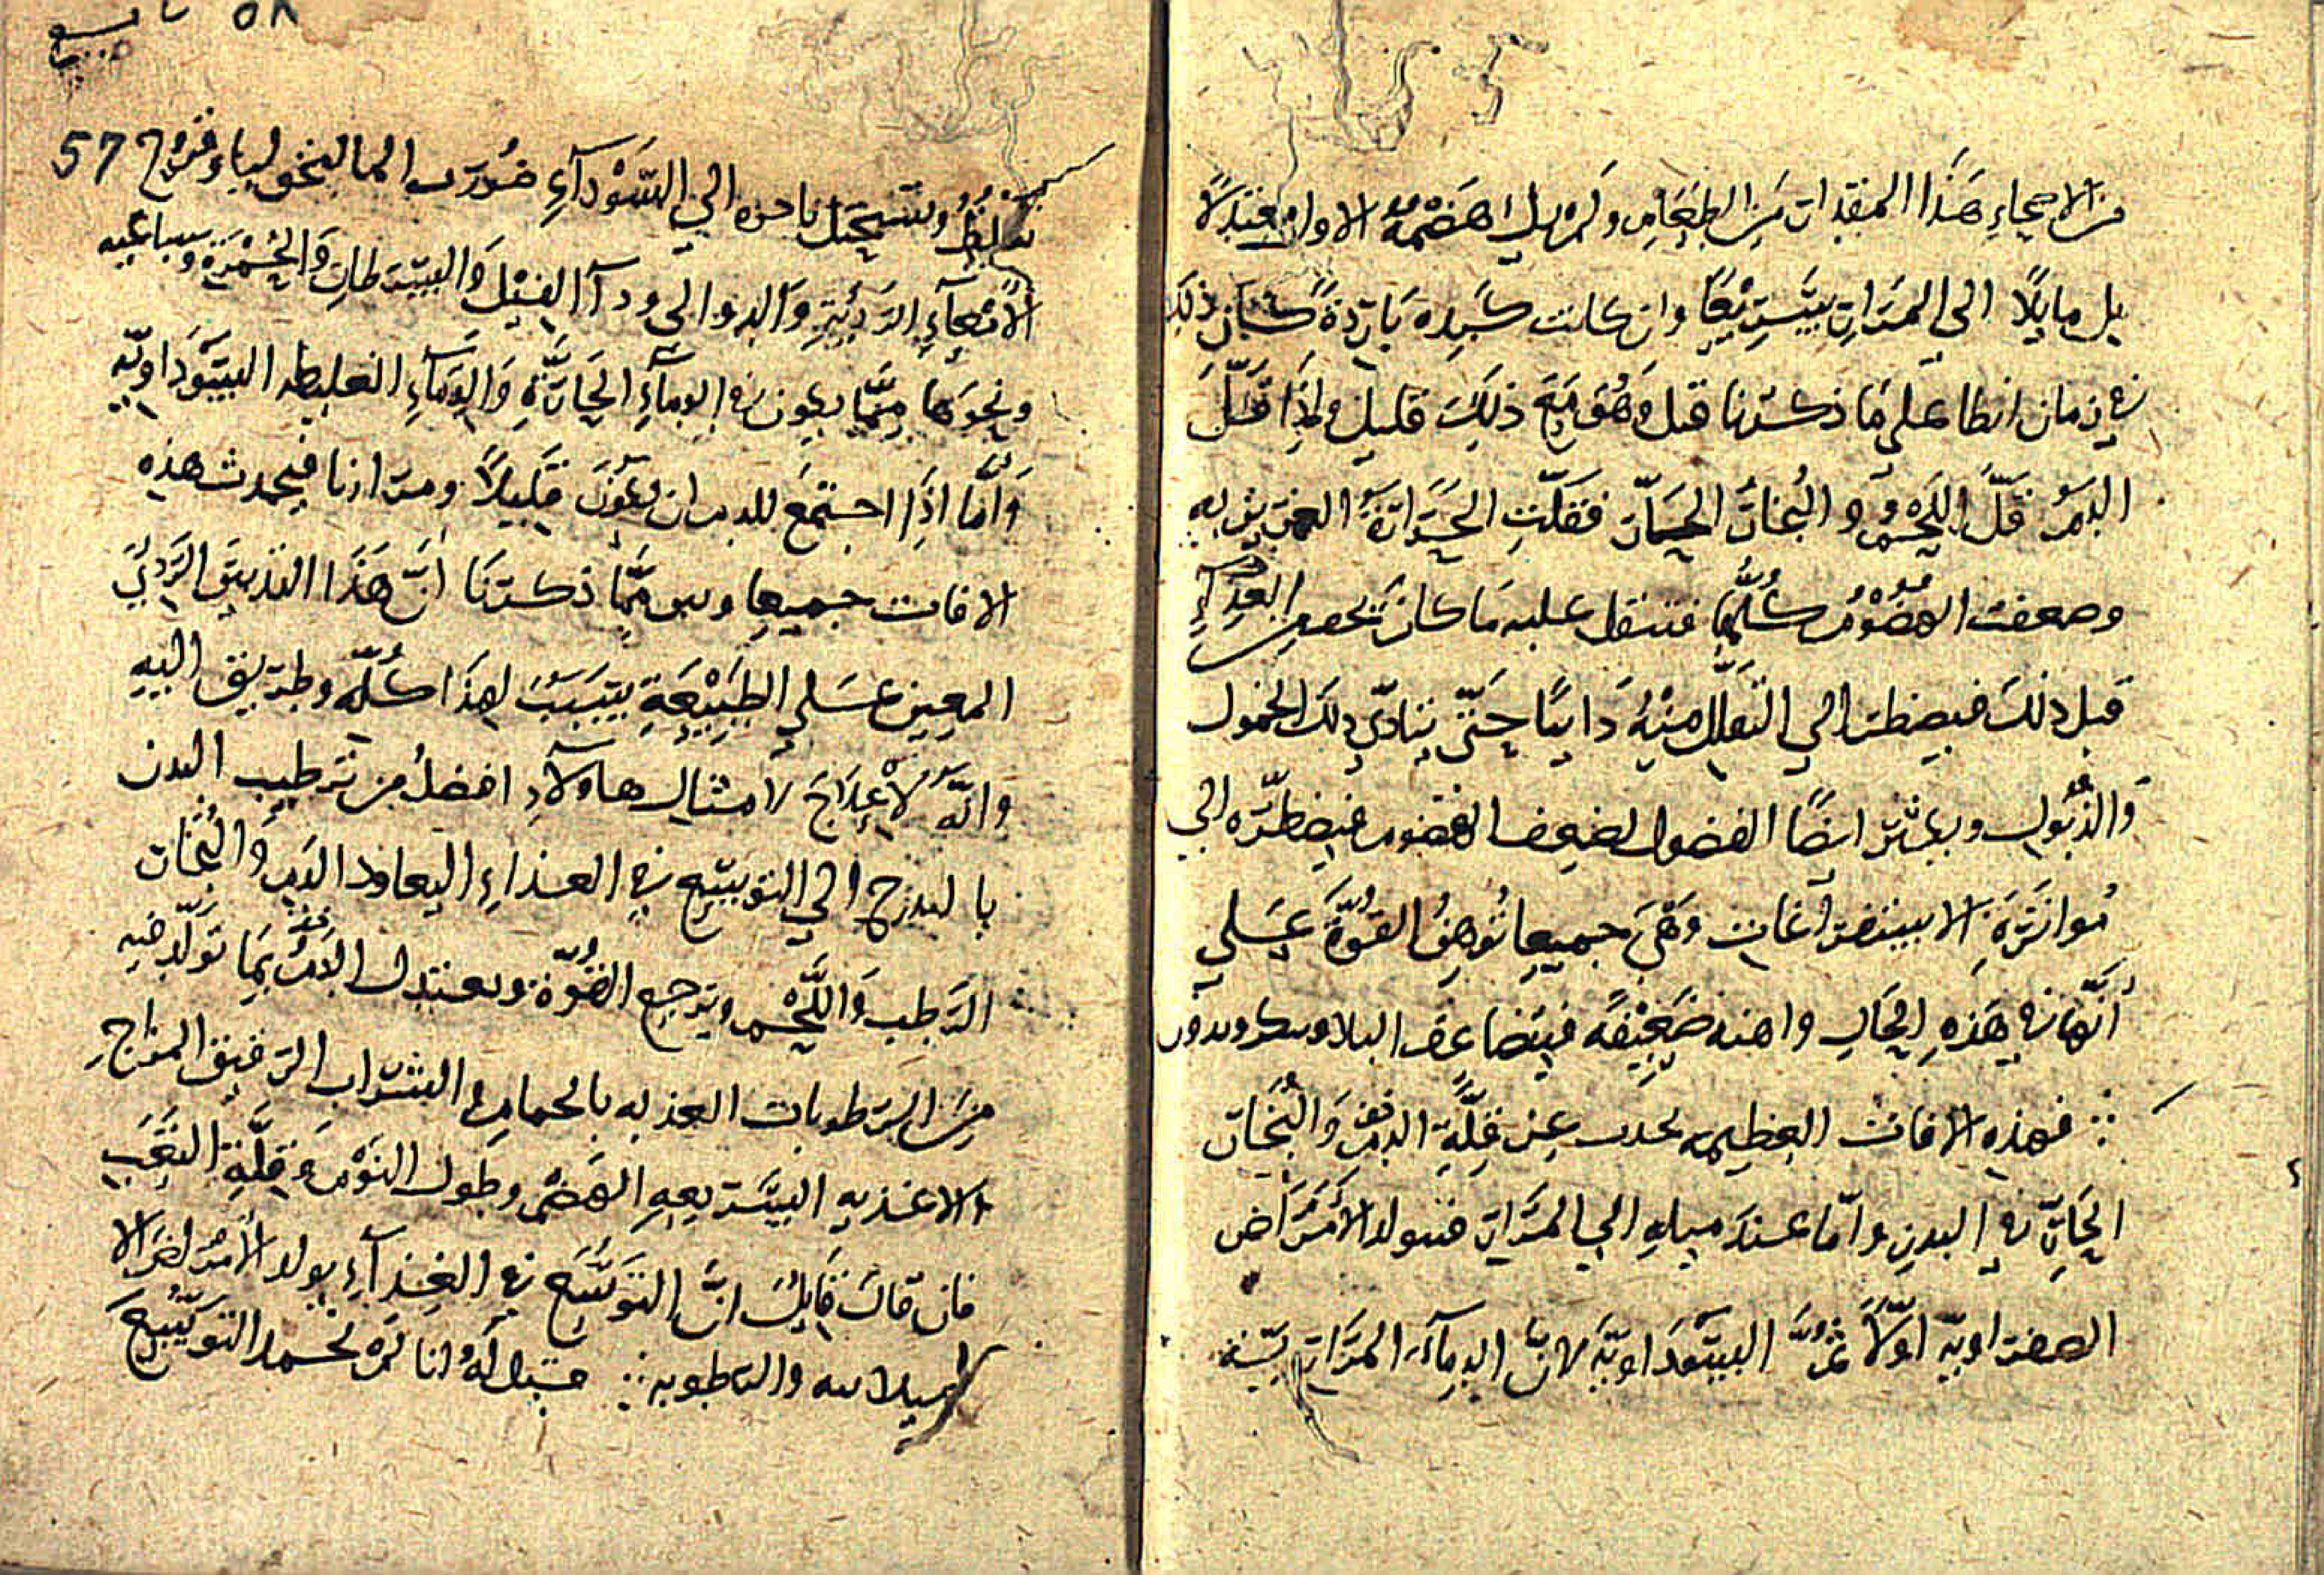 من الامعاء هذا المقدار من الطعام ولم يك هضمه الاول معتدلاً
بل مايلاً الى المرار سريعًا وان كانت كبده باردة كان ذلك
في زمان ابطا على ما ذكرنا قبل وهو مع ذلك قليل واذا قلّ
الدم قلّ اللحم و البخار الحار فقلّت الحرارة الغريزيه
وضعفت الهضوم كلّها فتثقل عليه ما كان يخف من الغذاء
قبل ذلك فيضطر الي التقلل منه دايبًا حتّى يتادّي ذلك الخمول
والذبول ويكثر ايضًا الفضول لضعف الهضوم فيضطرّه الي
مواترة الاستفراغات وهي جميعا توهن القوّة علي
أنّها في هذه الحال واهنه ضعيفه فيتضاعف البلا
فهذه الافات العظيمه تحدث عن قلّة الدم والبخار
الحارّ في البدن وامّا عند ميله الي المرار فتولد الأمراض
الصفراويّة اوّلاً ثمّ السوداويّة لانّ الدماء المراريّة
٥٨ تاسع
تغلظ وتستحيل باخره الي السوداء ضروب المالنخوليا وقروح 57
الأمعاء الرديّة والدوالى ودآا الفيل والسرطان والحمرة وساعيه
ونحوها ممّا يكون في الدماء الحارّة والدماء الغليظه السوداويّه
وأمّا اذا اجتمع للدم ان يكون قليلاً ومراريا فيحدث هذه
الافات جميعا وبين ممّا ذكرنا أنّ هذا التدبير الردي
المعين علي الطبيعة يسبب لهذا كلّه وطريق اليه
وانّه لا علاج لامثال هاولاء افضل من ترطيب البدن
بالتدرج الي التوسع في الغذاء ليعاود الدم والبخار
الرطب واللحم ويرجع القوّة ويعتدل الدم بما تولّد فيه
من الرطوبات العذبه بالحمام و الشراب الرقيق المزاج
والاغذيه السريعه الهضم وطول النوم وقلّة التعب
فان قال قايل انّ التوسّع في الغذاء يولد الأمراض
والرطوبه فيقل له انا لم نحمد التوسّع